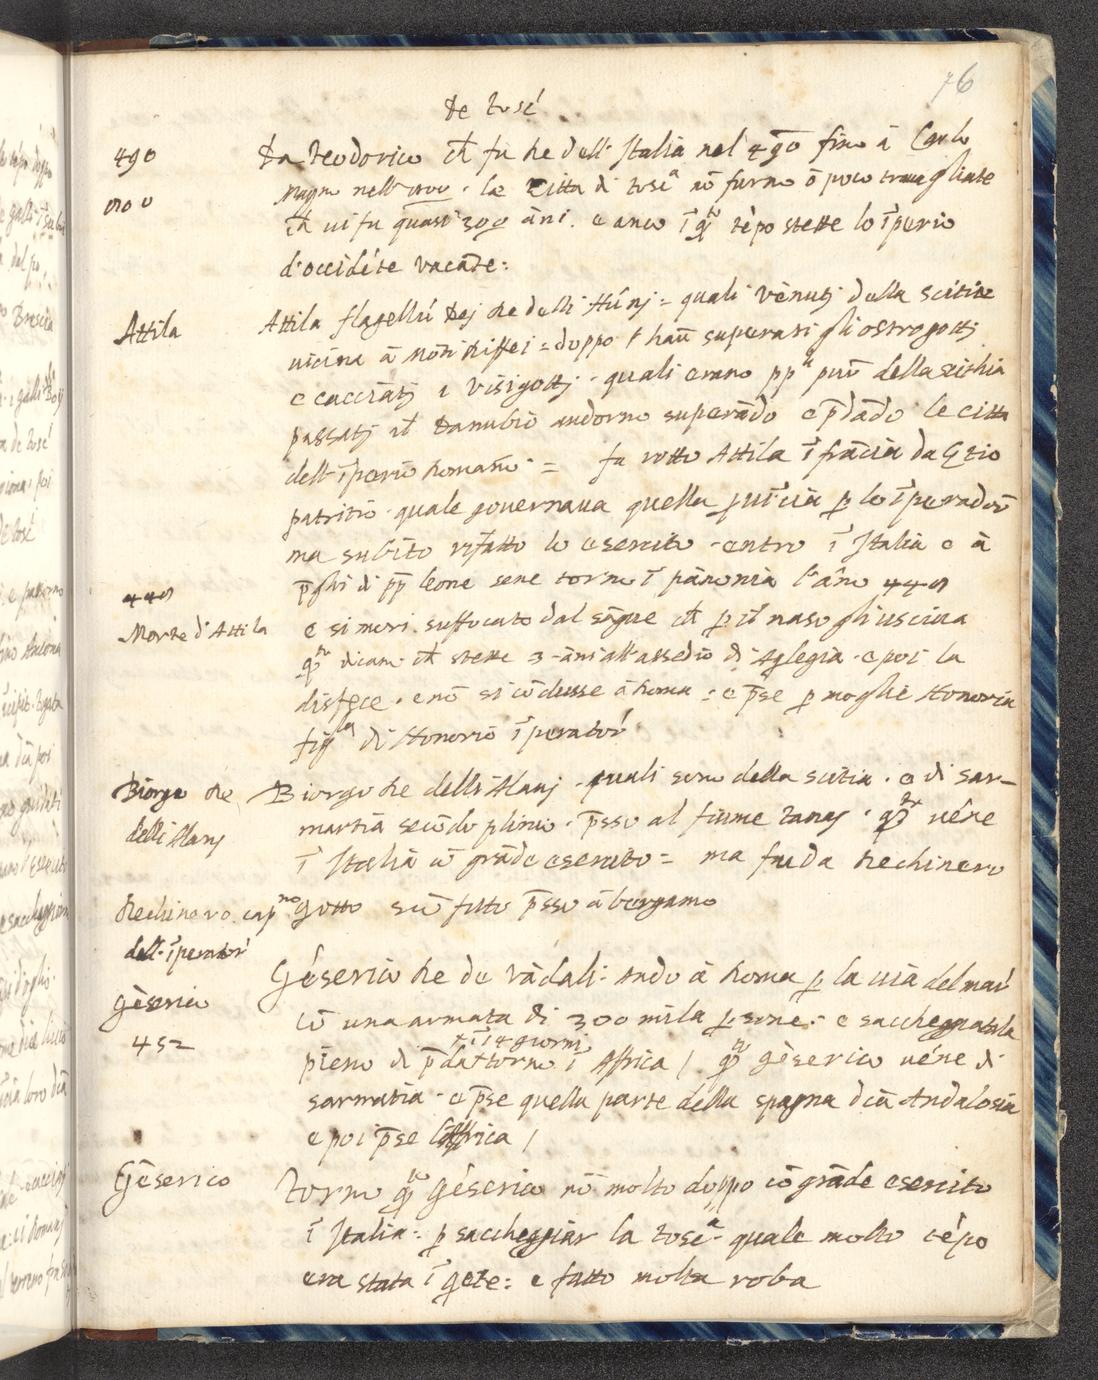 76
De tosc̄
490
Da Teodorico ch̄ fu Re dell' Italia nel 490 fino ā Carlo
Magno nell' . le Citta di tosc^a nō furno ō poco travagliate
800
ch̄ ui fu quasi 300 āni . e anco ī q̄^o tēpo stette lo īperio
d'occidēte vacāte :
Attila
Attila flagellū Dej Re delli Hūnj = quali vēnutj della scitia
uicina ā mōti Riffei = doppo haū superati gli ostrogottj
e cacciātj i visigottj . quali erano pp^a pur della scithia
passatj il Danubio andorno superādo e p̄dādo le citta
dell' īperio Romano = fu rotto Attila ī frācia da Ezio
patritio . quale governaua quella ꝓuīcia ꝑ lo īperador
ma subito rifatto lo esercito . entro ī Italia e ā
p̄ghi di pp̄ leone sene torno ī pānonia l'āno 448
448
Morte d'Attila
e si mori suffocato dal sāgue ch̄ ꝑ il naso gli usciua
q̄^o dicano ch̄ stette 3 āni all' assedio di Aq̄legia . e poi la
disfece . e nō si cōdusse ā Roma : e p̄se ꝑ moglie Honoria
fig^la di Honorio īperator
Biorgo Re
delli Alanj
Biorgo Re delli Alanj . quali sono della scitia . e di sar-
martia secōdo plinio . p̄sso al fiume tanaj . q̄^o uēne
ī Italia cō grāde esercito = ma fu da Rechinero
Rechinero cap^no
dell' īperator
gotto scōfitto p̄sso ā bergamo
Gēserico
452
Gēserico Re de vādali : ando ā Roma ꝑ la uia del mar
cō una armata di 300 mila ꝑsone : e saccheggiatala
+ ī 14 giorni
pieno di p̄da + torno ī Affrica / q̄^o gēserico uēne di
sarmatia . e p̄se quella parte della spagna dc̄ā Andalosia
e poi p̄se l'Affrica /
Gēserico
Torno q̄^o gēserico nō molto doppo cō grāde esercito
ī Italia : ꝑ saccheggiar la tosc^a . quale molto tēpo
era stata ī q̄ete : e fatto molta roba